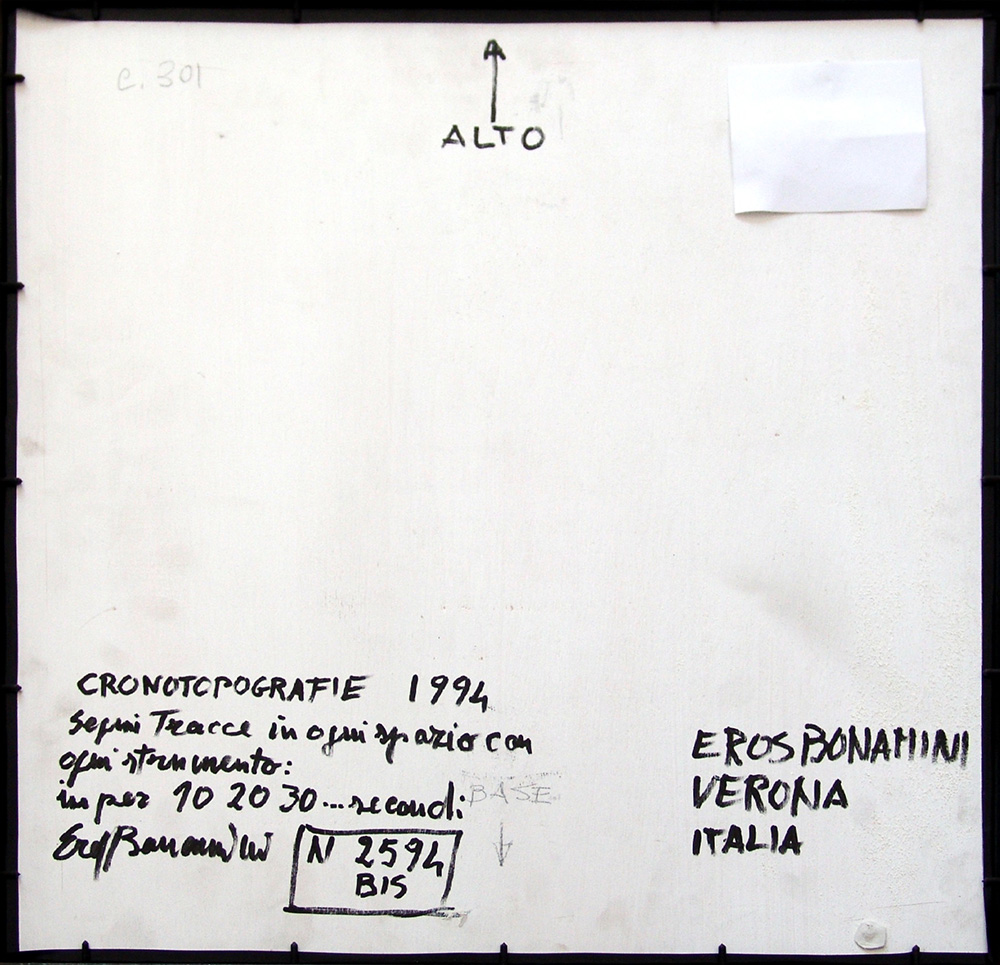 c. 301
ALTO
CRONOTOPOGRAFIE 1994
Segni Tracce in ogni spazio con
ogni strumento:
in per 10 20 30...secondi
BASE
Eros Bonamini
N 2594
BIS
EROS BONAMINI
VERONA
ITALIA